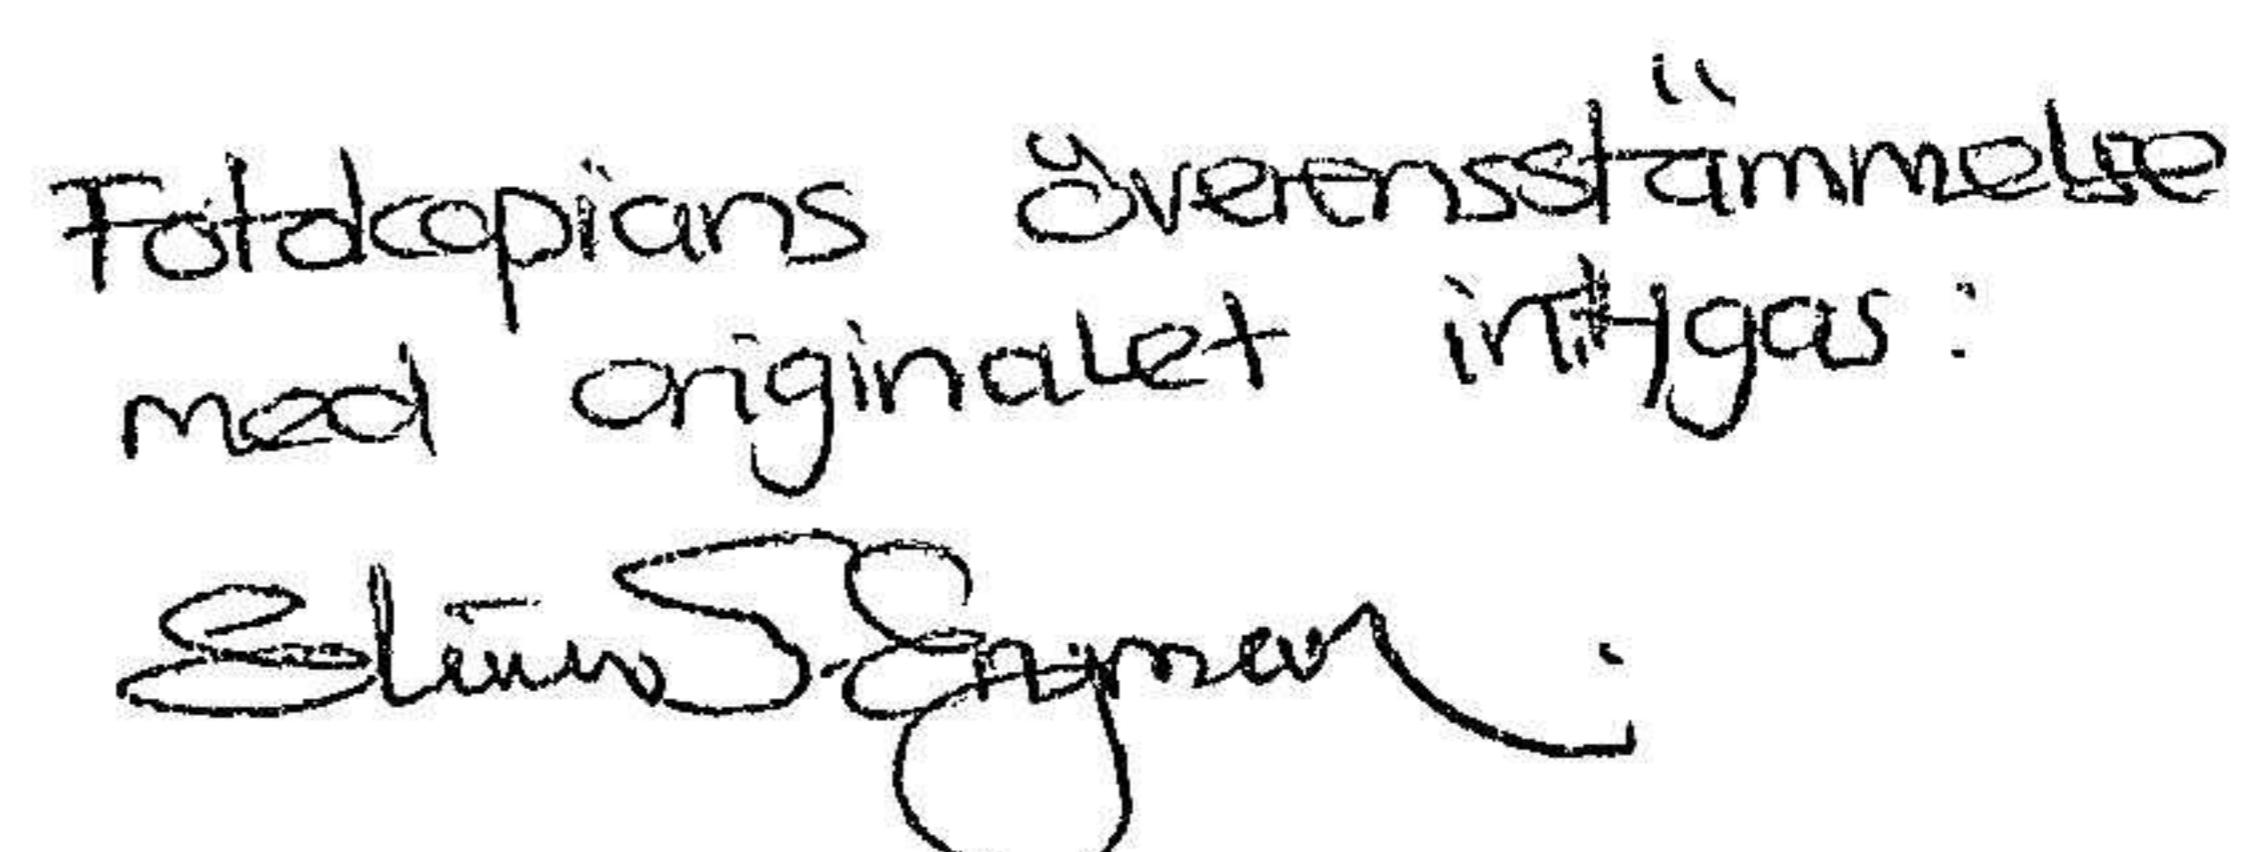 Fotocopians överensstämmelse
med originalet intygas: